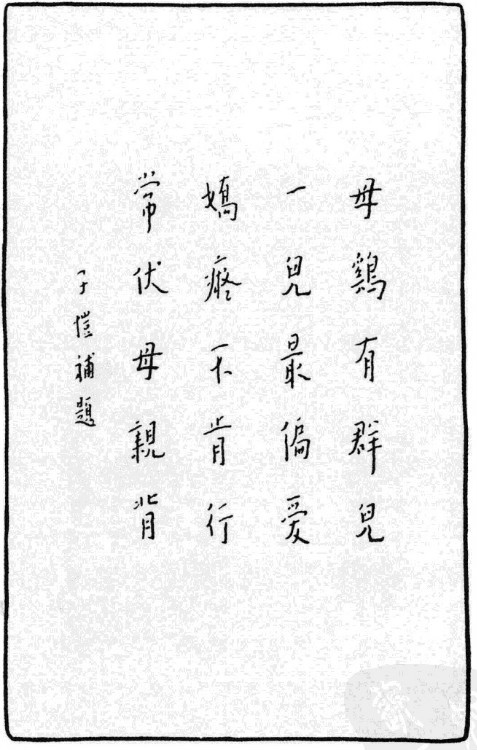 母鷄有群兒
一兒最偏爱
嬌痴不肯行
常伏母親背
子愷補題